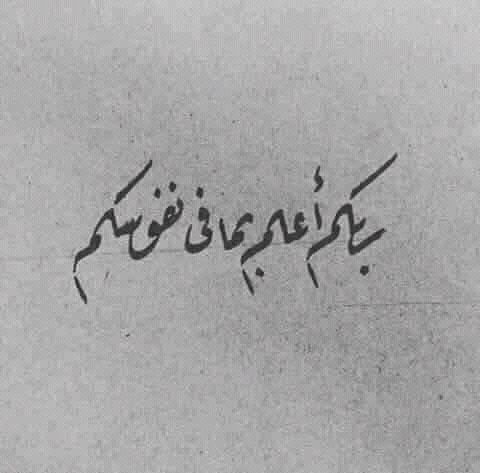 ربكم أعلم بما في نفوسكم